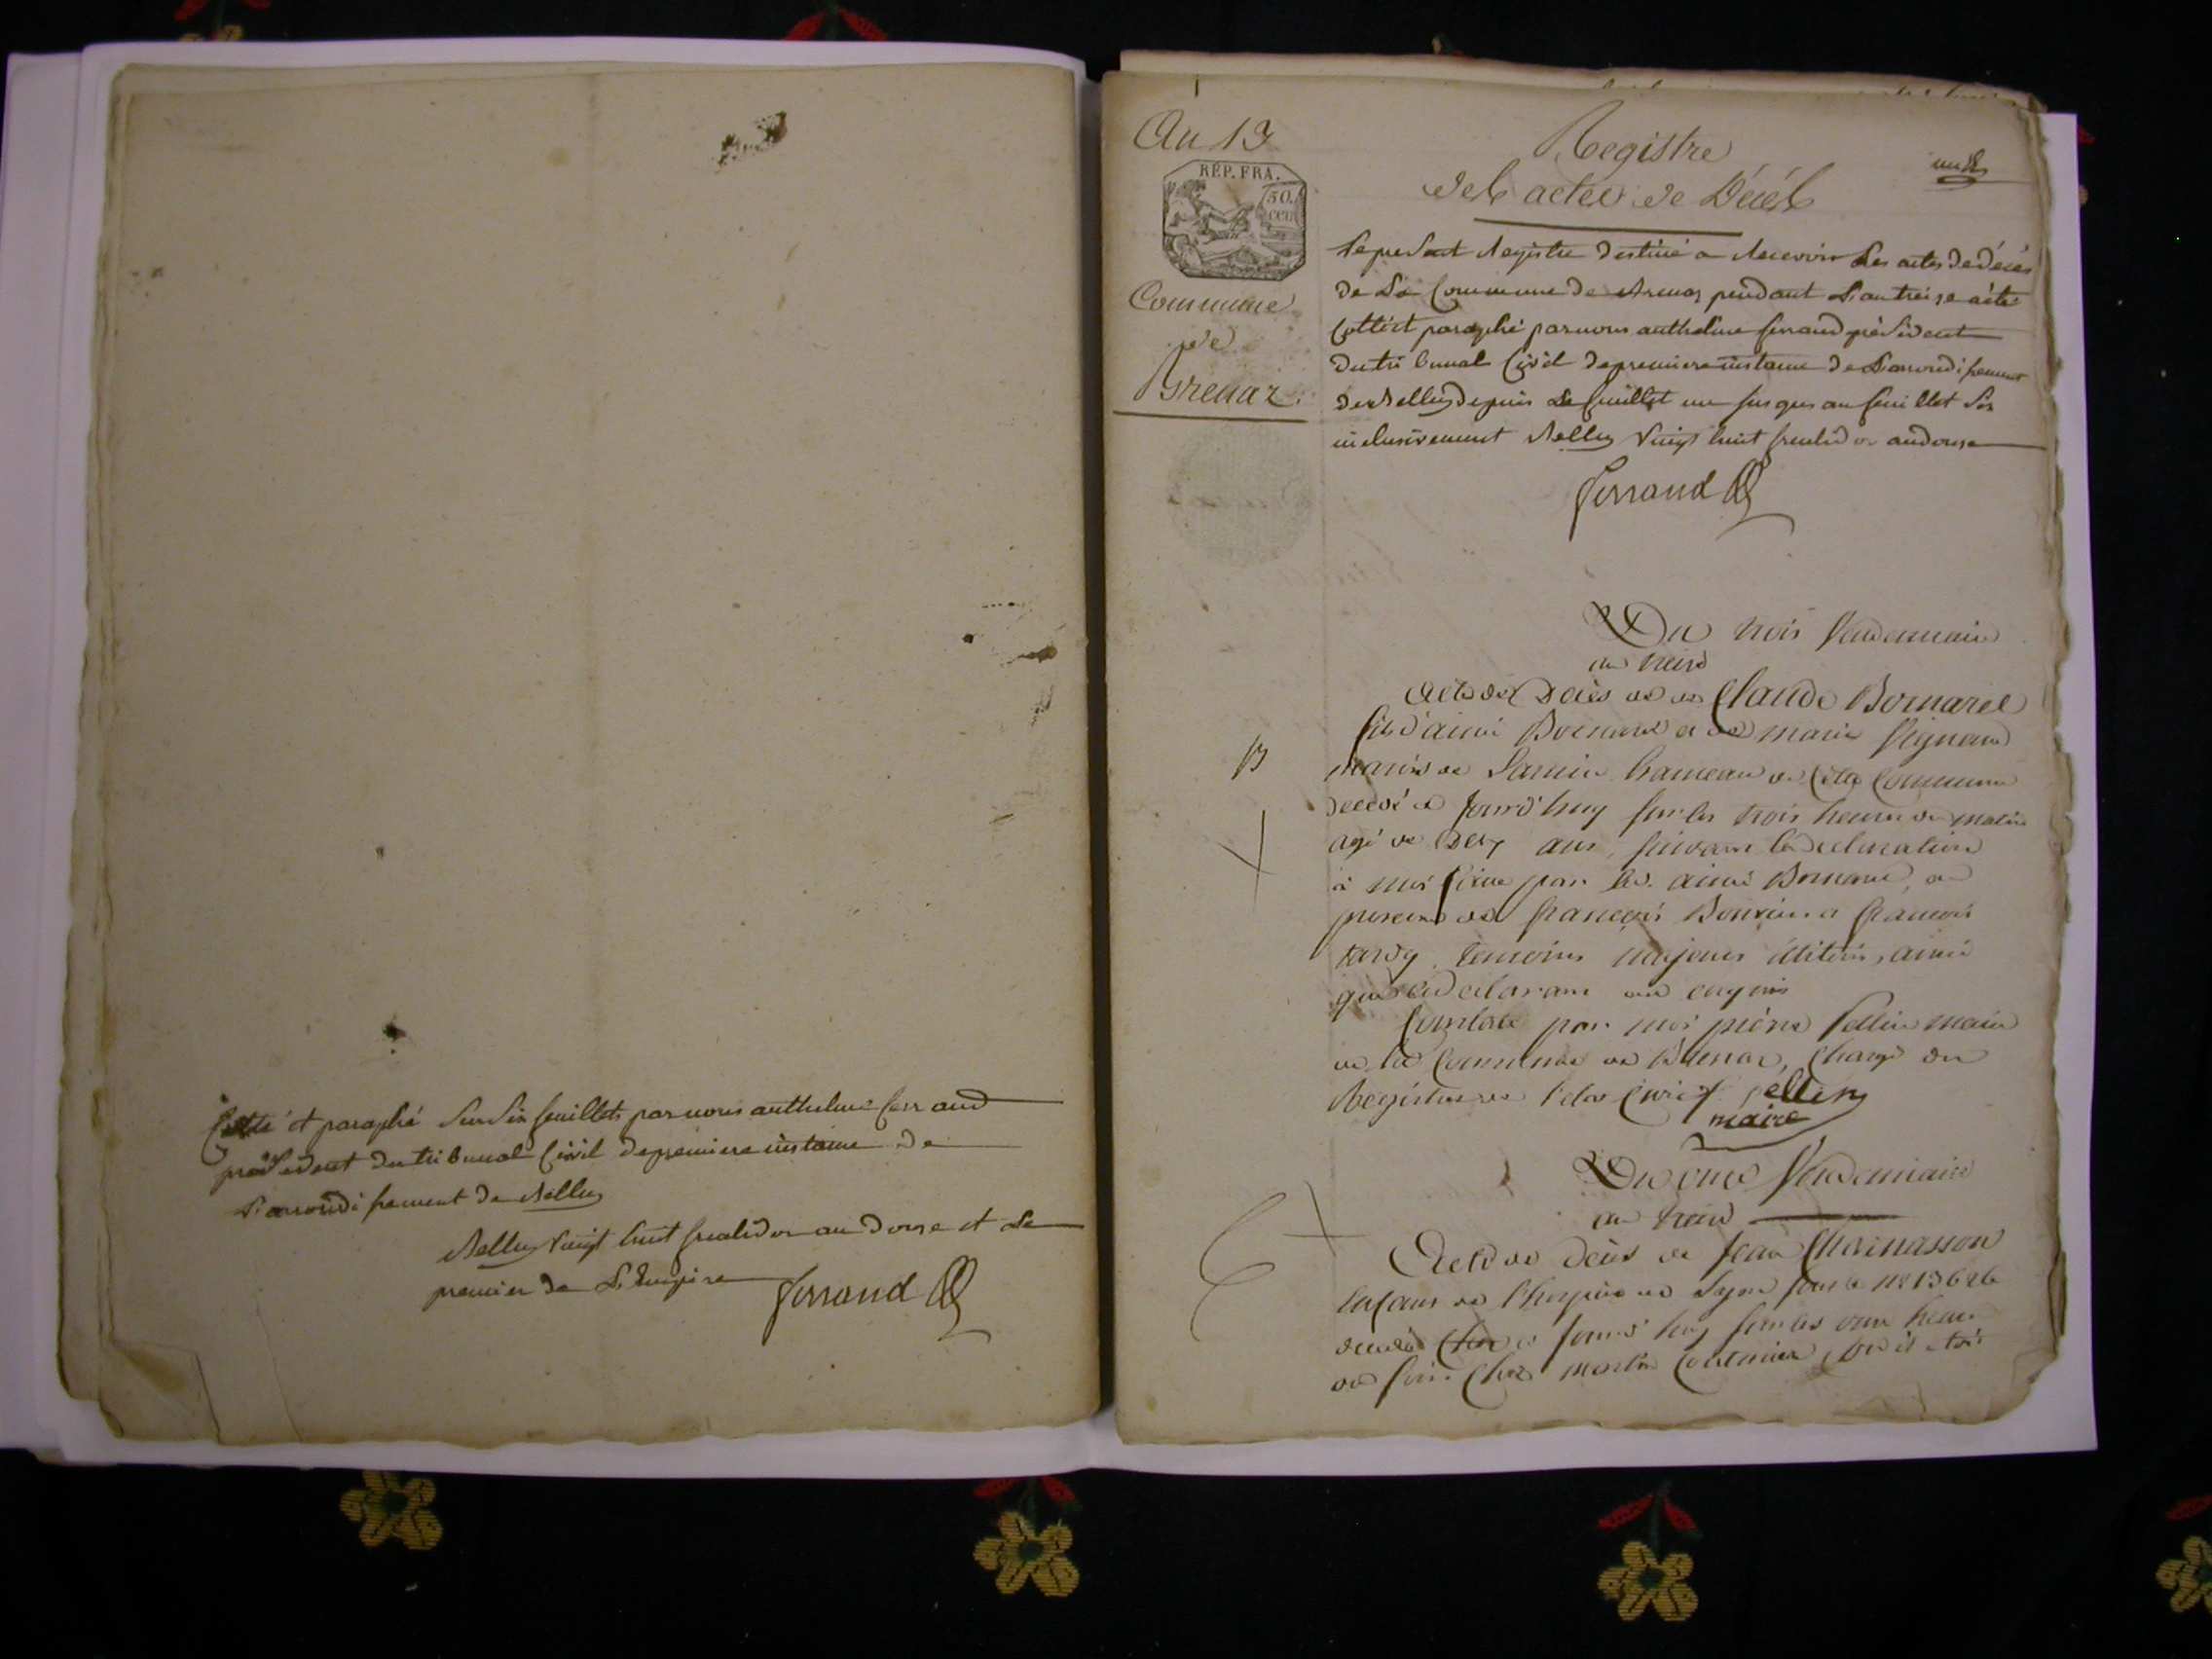 Cotté et paraphé sur six feuillets par nous anthelme ferrand
président du tribunal civil de premiere instance de
L'arrondissement de Belley
Belley vingt huit fructidor an douze et Le
premier de L'Empire ferrand
An 13
RÉP. FRA.
50.
cen
Commune
de
Brenaz.
Registre
des actes de Décés
Le present Registre destiné a recevoir Les actes de décés
de La Commune de Brenaz pendant L'an treize a été
Cotté et paraphé par nous anthelme ferrand président
du tribunal Civil de premiere instance de L'arrondissement
de Belley depuis Le feuillet un jusques au feuillet six
inclusivement Belley vingt huit fructidor an douze
ferrand
Du trois Vendemiaire
an treize
Acte de Décès de Claude Bornarel
fils d'aimé Bornarel et de marie
mariés de hameau de Cette Commune
decedé a jourd'huy sur les trois heures du matin
agé de ans, suivant la declaration
à moi faite par led. aimé Bornarel, en
presence de françois et françois
tardy, temoins majeurs illitérés, ainsi
que led declarant
Constaté par moi pierre Pellin maire
de la Commune de Brenaz, Chargé du
Registre de l'état Civil Pellin
maire
Du onze Vendemiaire
an treize
Acte de décès de Jean
Enfant de l'hospice de Lyon sous le N° 13626
decedé Chez a jourd'huy sur les onze heures
du soir Chez martin où il étoit